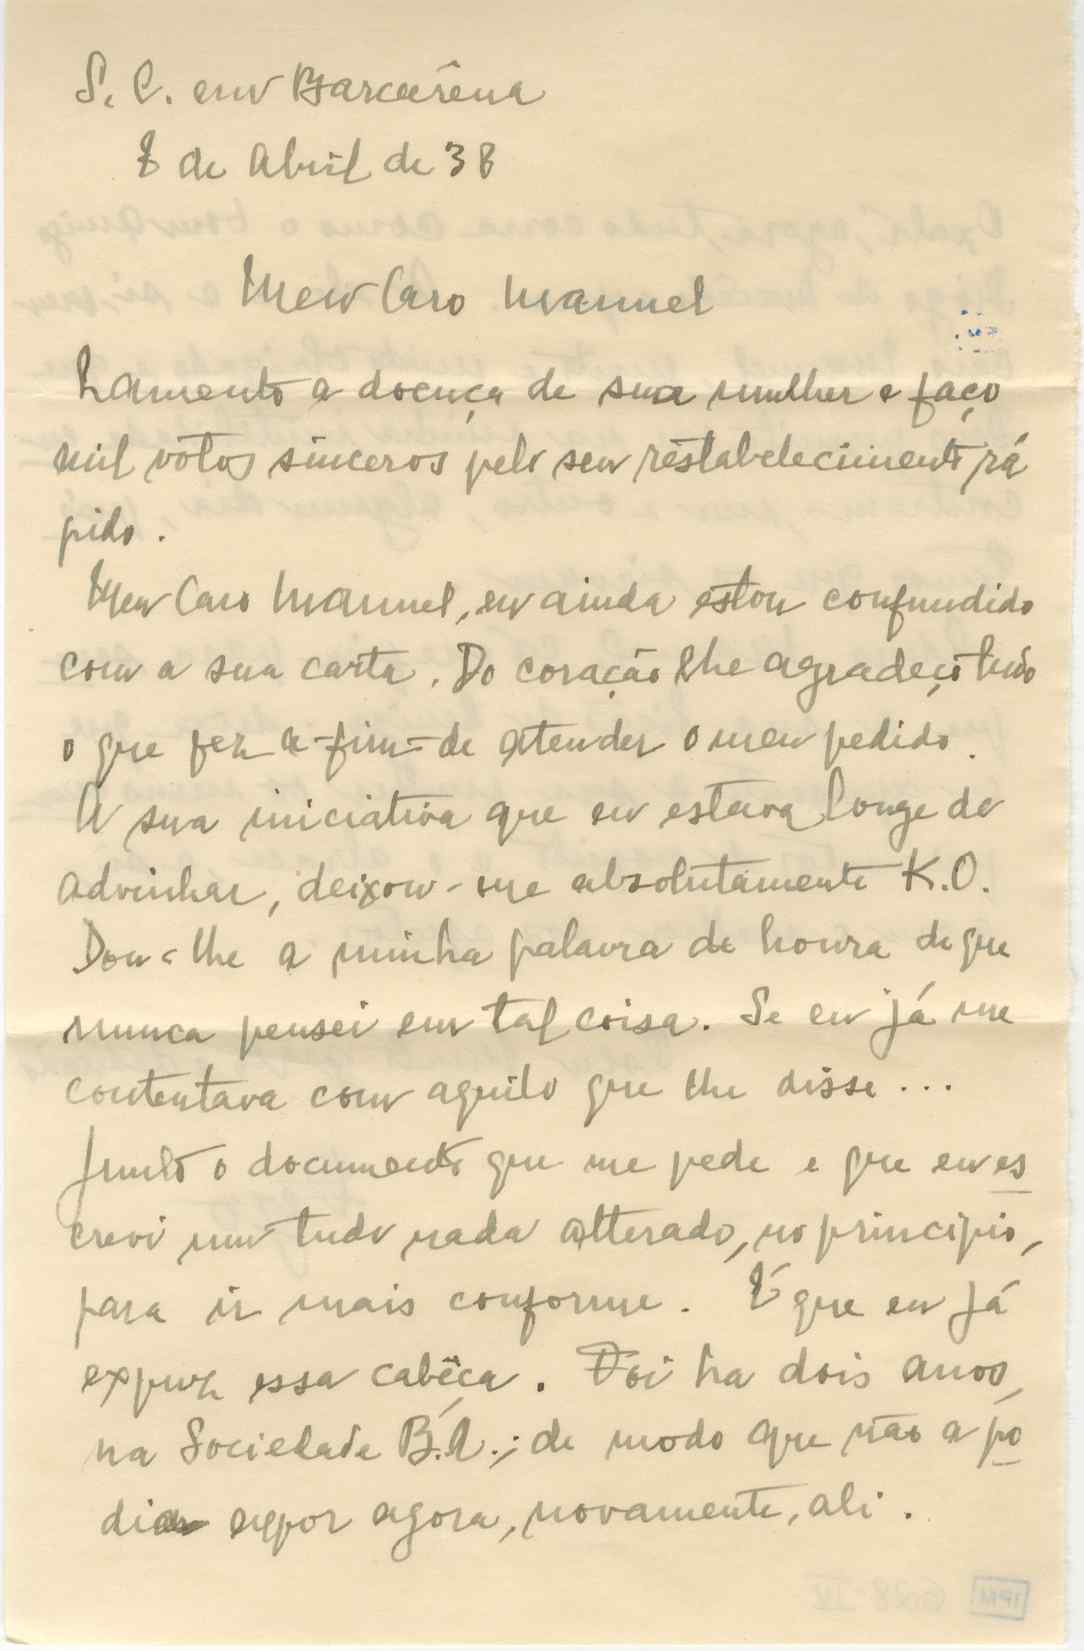 S. C. em Barcarêna
8 de Abril de 38
Meu Caro Manuel
Lamento a doença de sua mulher e faço
mil vótos sinceros pelo seu réstabelecimento rá
pido.
Meu Caro Manuel, eu ainda estou confundido
com a sua carta. Do coração lhe agradeço tudo
o que fez a-fim-de atender o meu pedido.
A sua iniciativa que eu estava longe de
advinhar, deixou-me absolutamente K.O.
Dou-lhe a minha palavra de honra de que
nunca pensei em tal coisa. Se eu já me
contentava com aquilo que lhe disse...
Junto o documento que me pede e que eu es
crevi um tudo nada alterado, no principio,
para ir mais conforme. É que eu já
expuz essa cabêça. Foi ha dois anos,
na Sociedade B.A.; de modo que não a po
dia expor agora, novamente, ali.